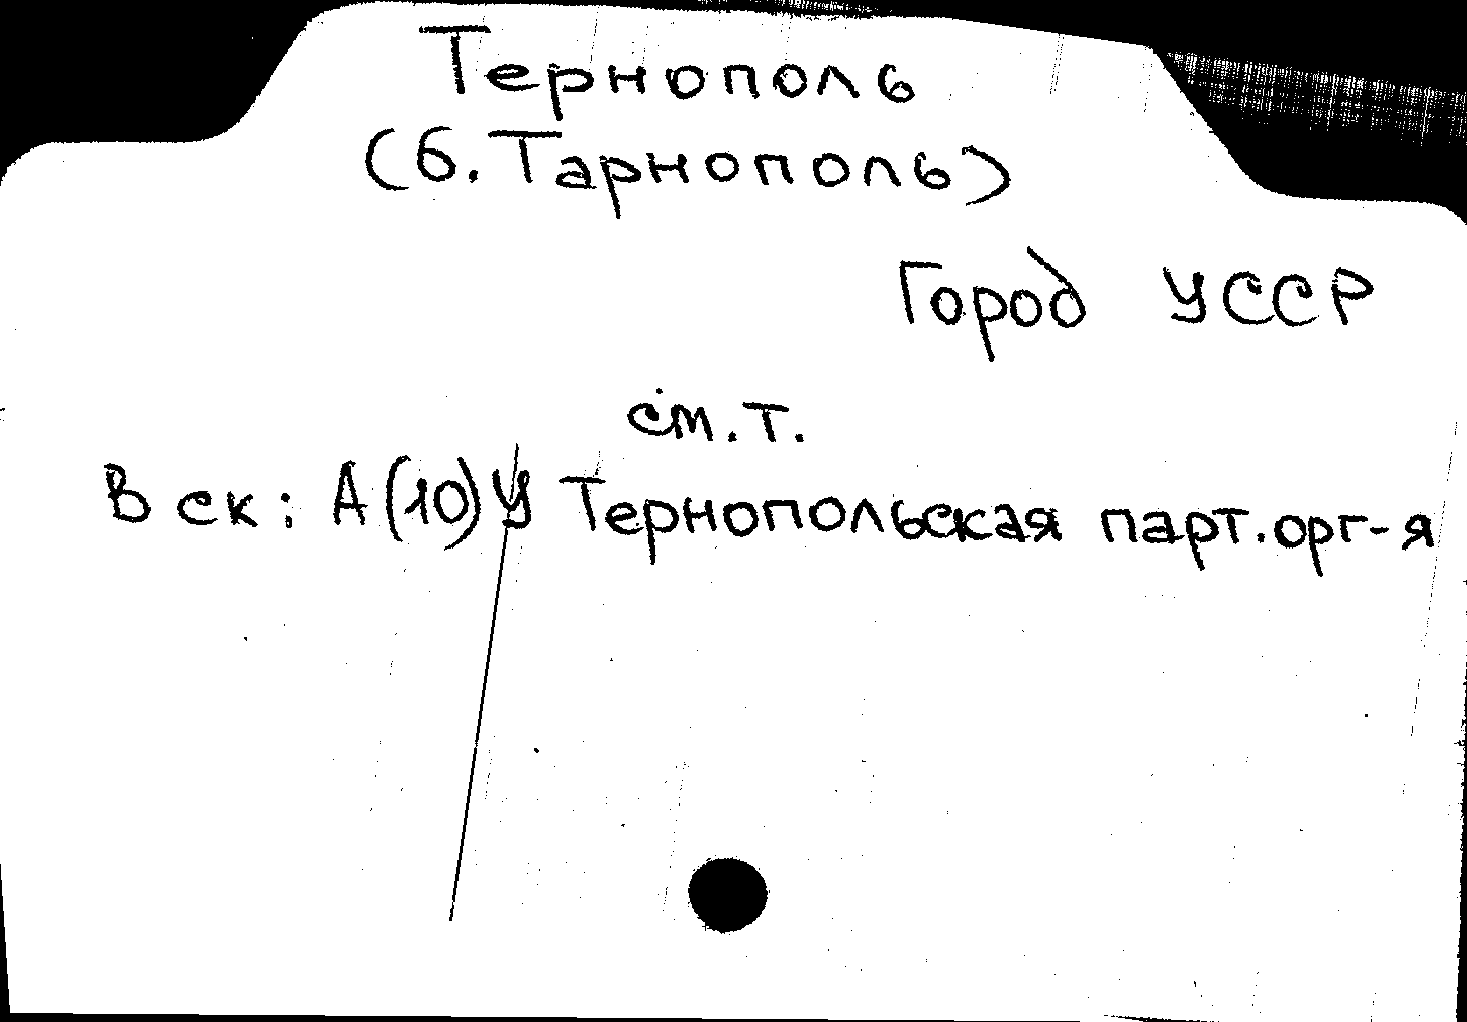 Тернополь
(б. Тарнополь)
Город УССР
см. т.
В ск: А(10)У Тернопольская парт. орг-я